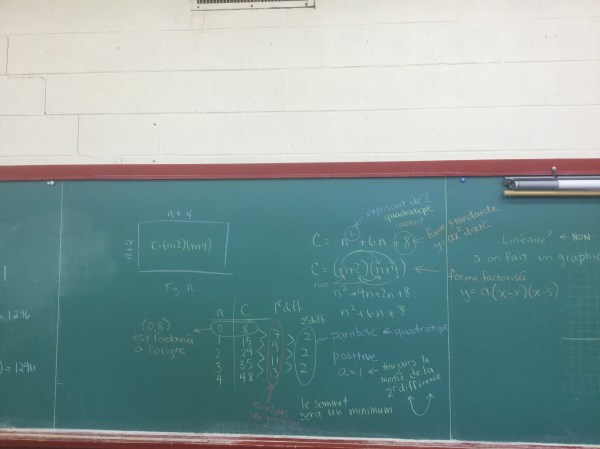 = 1296
) = 1296
n+4
n+2
C=(n+2)(n+4)
Fig n
(0,8)
est l'ordonnée
à l'origine
n C 1e diff 2e diff
0 8
1 15 7
2 24 9 2
3 35 11 2
4 48 13 2
exposant de 2
quadratique
C = n² + 6n + 8
forme standard
C = (n+2)(n+4)
n² + 4n + 2n + 8
n² + 6n + 8
parabole ← quadratique
positive
a = 1 ← toujours la
moitié de la
2e différence
le sommet
sera un minimum
Linéaire? ← NON
s on fait un graphique
forme factorisé
y = a(x-r)(x-s)